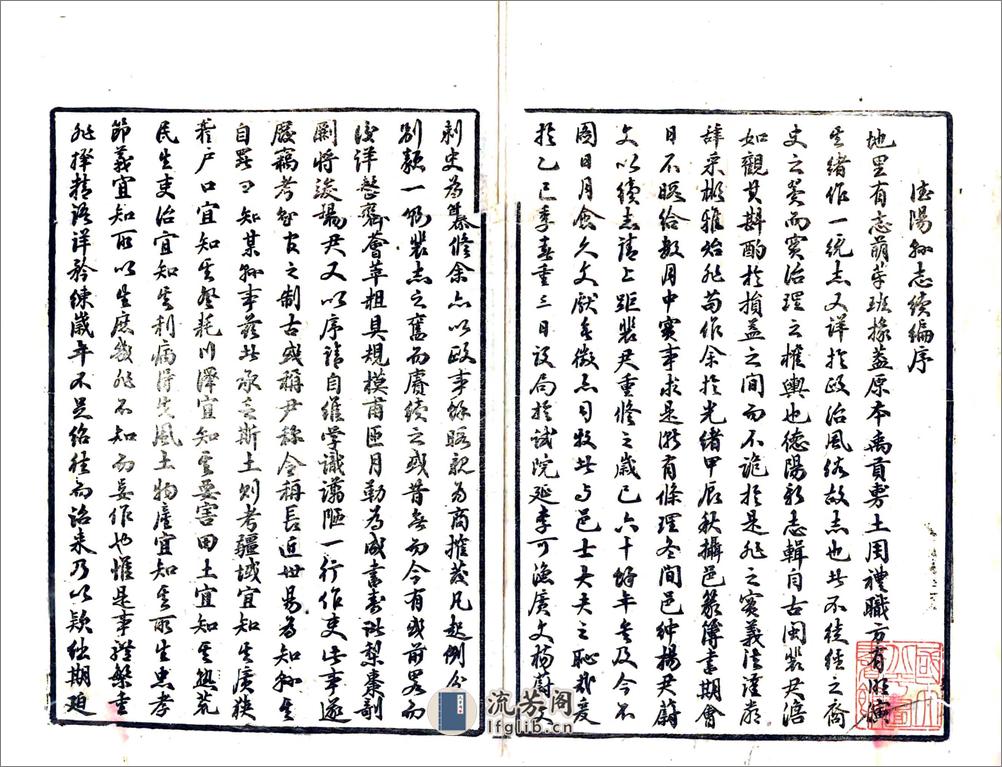 德陽縣志續編序
地里有志萌芽班掾蓋原本禹貢專土周禮職方有所濟
其緒作一統志又詳於政治風俗故志也其不徒經之裔
史之箕而實治理之權輿也德陽新志輯自古閩裴尹
如觀其斟酌於損益之間而不詭於是非之實義法謹嚴
辭采彬雅殆非苟作余於光緒甲辰秋攝邑篆簿書期會
日不暇給數月中實事求是漸有條理冬間邑紳楊尹蔚
文以續志請上距裴尹重修之歲已六十餘年矣及今不
圖日月愈久文獻無徵亦司牧者與邑士大夫之恥哉爰
於乙巳季春重三日設局於試院延李可漁廣文楊蔚文
刺史為纂修余亦以政事餘暇親為商搉發凡起例分
別類一仍裴志之舊而賡續之或昔無而今有或前畧而
後詳整齊薈萃粗具規模甫匝月勒為成書書
剞將竣楊尹又以序請自維學識譾陋一行作吏此事遂
廢竊考知古之制古或稱尹縣令稱長近世易為知縣其
自署曰知某縣事茲其承乏斯土則考疆域宜知其廣狹
考戶口宜知其登耗川澤宜知其要害田土宜知其熟荒
民生吏治宜知其利病得失風土物產宜知其所生忠孝
節義宜知所以生庶幾非不知而妄作也惟是事體繁重
非擇精語詳矜練歲年不足紹往而詔來乃以款絀期迫
流芳阁
lfglib.cn